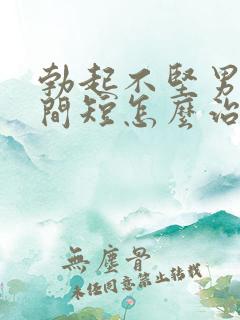 勃起不堅男
間短怎麼治
無塵骨
未经同意禁止转载